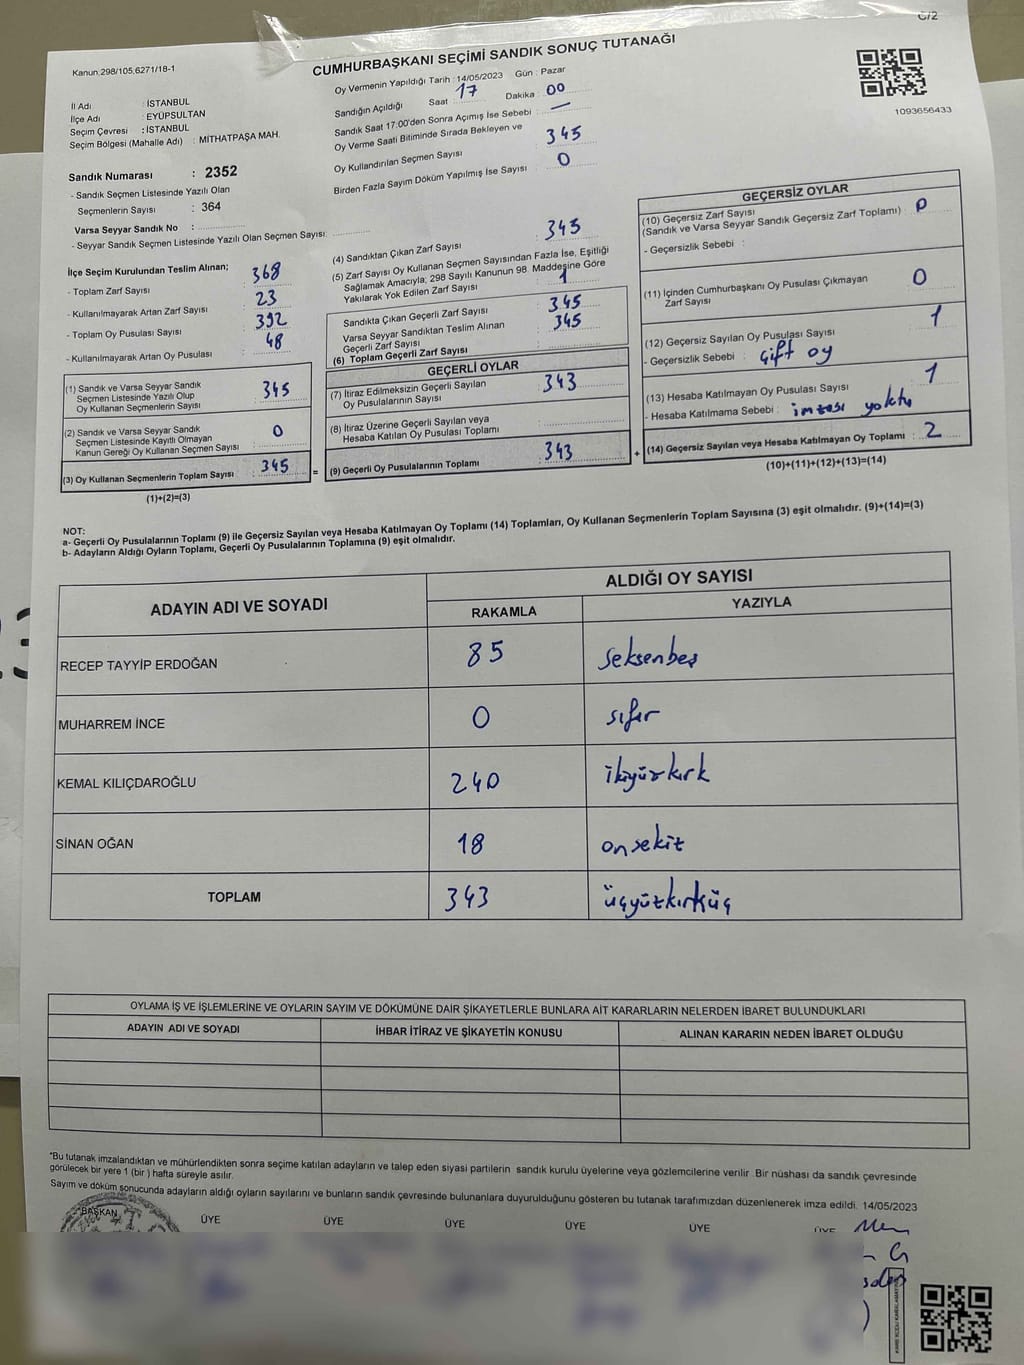 C/2
Kanun:298/105,6271/18-1
CUMHURBAŞKANI SEÇİMİ SANDIK SONUÇ TUTANAĞI
1093656433
İl Adı : İSTANBUL
İlçe Adı : EYÜPSULTAN
Seçim Çevresi : İSTANBUL
Seçim Bölgesi (Mahalle Adı) : MİTHATPAŞA MAH.
Oy Vermenin Yapıldığı Tarih : 14/05/2023 Gün : Pazar
Sandığın Açıldığı Saat : 17 Dakika : 00
Sandık Saat 17:00'den Sonra Açımış İse Sebebi : —
Oy Verme Saati Bitiminde Sırada Bekleyen ve
Oy Kullandırılan Seçmen Sayısı 345
Birden Fazla Sayım Döküm Yapılmış İse Sayısı : 0
Sandık Numarası : 2352
- Sandık Seçmen Listesinde Yazılı Olan
Seçmenlerin Sayısı : 364
Varsa Seyyar Sandık No :
- Seyyar Sandık Seçmen Listesinde Yazılı Olan Seçmen Sayısı:
İlçe Seçim Kurulundan Teslim Alınan;
- Toplam Zarf Sayısı : 368
- Kullanılmayarak Artan Zarf Sayısı : 23
- Toplam Oy Pusulası Sayısı : 392
- Kullanılmayarak Artan Oy Pusulası : 48
(1) Sandık ve Varsa Seyyar Sandık
Seçmen Listesinde Yazılı Olup
Oy Kullanan Seçmenlerin Sayısı : 345
(2) Sandık ve Varsa Seyyar Sandık
Seçmen Listesinde Kayıtlı Olmayan
Kanun Gereği Oy Kullanan Seçmen Sayısı : 0
(3) Oy Kullanan Seçmenlerin Toplam Sayısı : 345
(1)+(2)=(3)
=
(4) Sandıktan Çıkan Zarf Sayısı : 345
(5) Zarf Sayısı Oy Kullanan Seçmen Sayısından Fazla İse, Eşitliği
Sağlamak Amacıyla; 298 Sayılı Kanunun 98. Maddesine Göre
Yakılarak Yok Edilen Zarf Sayısı : 1
Sandıkta Çıkan Geçerli Zarf Sayısı : 345
Varsa Seyyar Sandıktan Teslim Alınan
Geçerli Zarf Sayısı : 345
(6) Toplam Geçerli Zarf Sayısı :
GEÇERLİ OYLAR
(7) İtiraz Edilmeksizin Geçerli Sayılan
Oy Pusulalarının Sayısı : 343
(8) İtiraz Üzerine Geçerli Sayılan veya
Hesaba Katılan Oy Pusulası Toplamı :
(9) Geçerli Oy Pusulalarının Toplamı : 343
+
GEÇERSİZ OYLAR
(10) Geçersiz Zarf Sayısı
(Sandık ve Varsa Seyyar Sandık Geçersiz Zarf Toplamı) : 0
- Geçersizlik Sebebi :
(11) İçinden Cumhurbaşkanı Oy Pusulası Çıkmayan
Zarf Sayısı : 0
(12) Geçersiz Sayılan Oy Pusulası Sayısı : 1
- Geçersizlik Sebebi : çift oy
(13) Hesaba Katılmayan Oy Pusulası Sayısı : 1
- Hesaba Katılmama Sebebi : imzası yoktu
(14) Geçersiz Sayılan veya Hesaba Katılmayan Oy Toplamı : 2
(10)+(11)+(12)+(13)=(14)
NOT:
a- Geçerli Oy Pusulalarının Toplamı (9) ile Geçersiz Sayılan veya Hesaba Katılmayan Oy Toplamı (14) Toplamları, Oy Kullanan Seçmenlerin Toplam Sayısına (3) eşit olmalıdır. (9)+(14)=(3)
b- Adayların Aldığı Oyların Toplamı, Geçerli Oy Pusulalarının Toplamına (9) eşit olmalıdır.
ADAYIN ADI VE SOYADI ALDIĞI OY SAYISI
RAKAMLA YAZIYLA
RECEP TAYYİP ERDOĞAN 85 seksenbeş
MUHARREM İNCE 0 sıfır
KEMAL KILIÇDAROĞLU 240 ikiyüzkırk
SİNAN OĞAN 18 onsekiz
TOPLAM 343 üçyüzkırküç
OYLAMA İŞ VE İŞLEMLERİNE VE OYLARIN SAYIM VE DÖKÜMÜNE DAİR ŞİKAYETLERLE BUNLARA AİT KARARLARIN NELERDEN İBARET BULUNDUKLARI
ADAYIN ADI VE SOYADI İHBAR İTİRAZ VE ŞİKAYETİN KONUSU ALINAN KARARIN NEDEN İBARET OLDUĞU
"Bu tutanak imzalandıktan ve mühürlendikten sonra seçime katılan adayların ve talep eden siyasi partilerin sandık kurulu üyelerine veya gözlemcilerine verilir. Bir nüshası da sandık çevresinde
görülecek bir yere 1 (bir) hafta süreyle asılır.
Sayım ve döküm sonucunda adayların aldığı oyların sayılarını ve bunların sandık çevresinde bulunanlara duyurulduğunu gösteren bu tutanak tarafımızdan düzenlenerek imza edildi. 14/05/2023
BAŞKAN ÜYE ÜYE ÜYE ÜYE ÜYE ÜYE